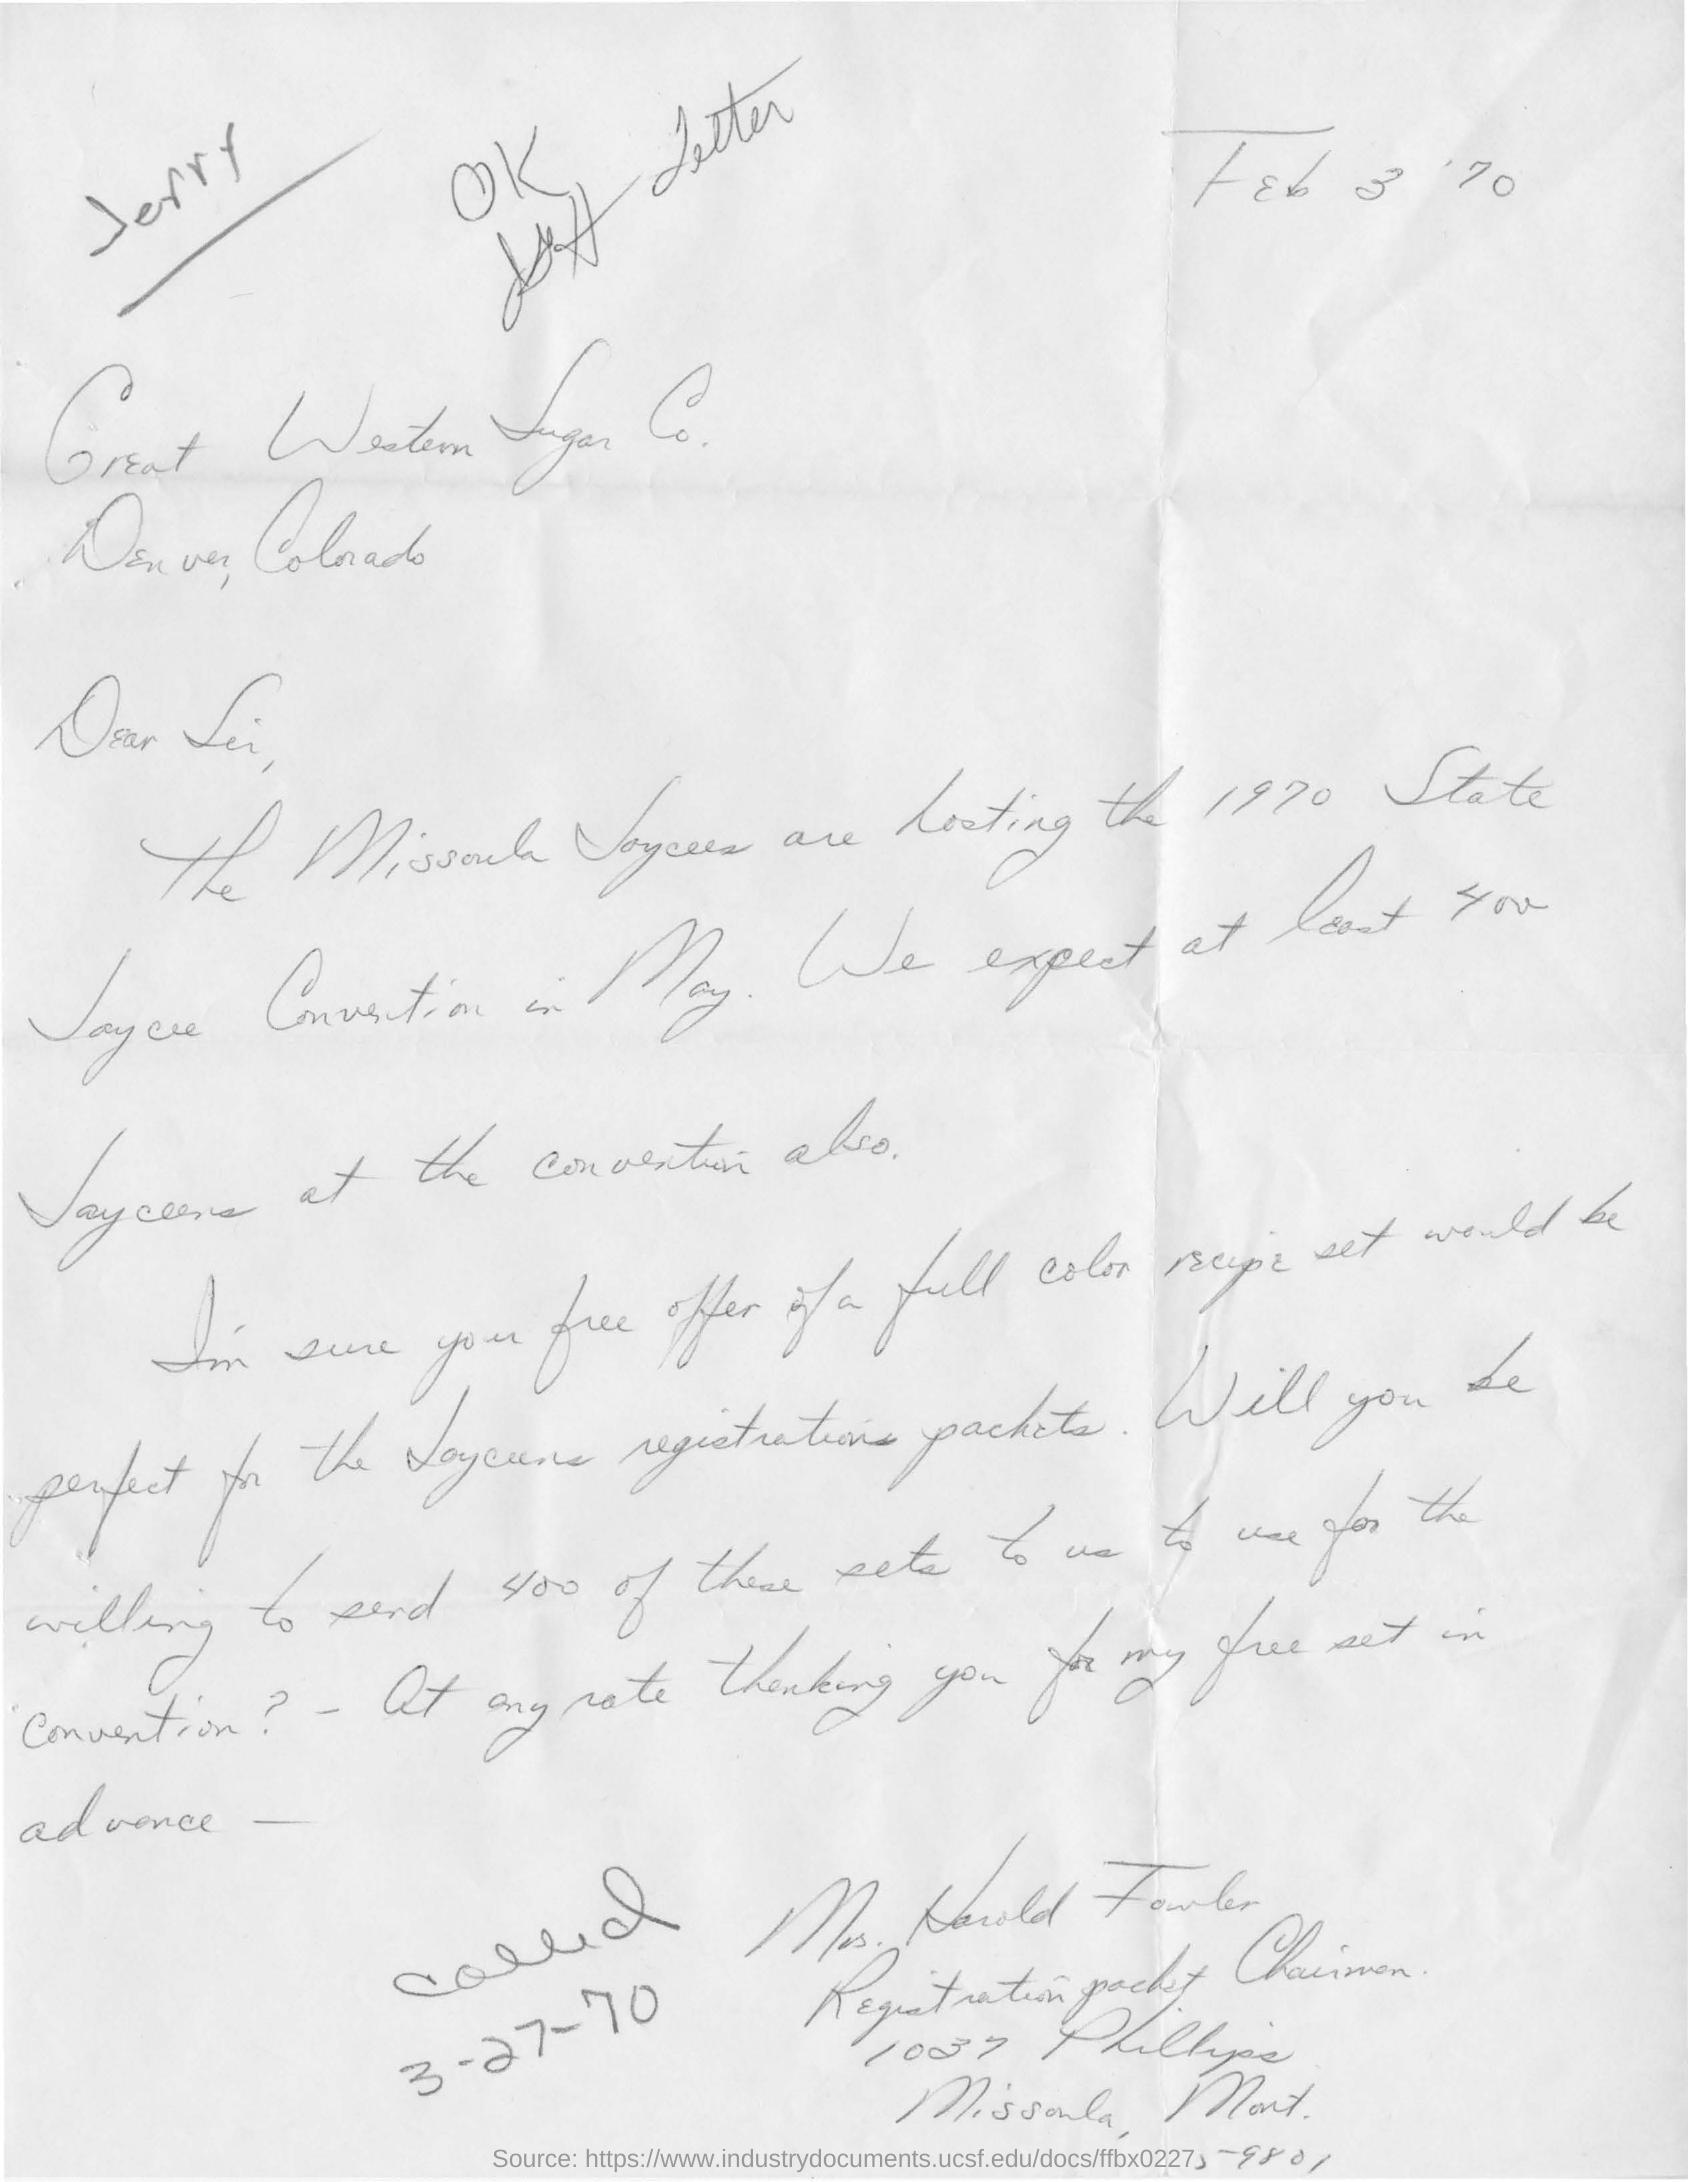 Jerry
OK
Letter
Feb 3 '70
Great Western Sugar Co.
Denver, Colorado
Dear Sir,
The Missoula Jaycees are hosting the 1970 State
Jaycee Convention in May. We expect at least 400
Jayceens at the convention also.
I'm sure your free offer of a full color recipe set would be
perfect for the Jayceens registrations packets. Will you be
willing to send 400 of these sets to us to use for the
convention? - At any rate thanking you for my free set in
advance —
called
3-27-70
Mrs. Harold Fowler
Registration packet Chairman.
1037 Phillips
Missoula, Mont.
Source: https://www.industrydocuments.ucsf.edu/docs/ffbx0227
-9801